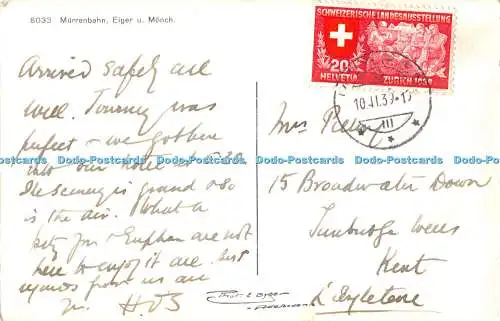 6033 Mürrenbahn, Eiger u. Mönch.
Arrived safely all
well. Journey was
perfect & we got here
into our hotel at 5.30
The scenery is grand & so
is the air. What a
pity you & Euphan are not
here to enjoy it all. Best
from us all
H
SCHWEIZERISCHE LANDESAUSSTELLUNG
20
HELVETIA ZÜRICH 1939
10.II.39
III
Mrs
15 Broadwater Down
Tunbridge Wells
Kent
L'Angleterre
Do-Postcards Do-Postcards Do-Postcards Do-Postcards Do-Postcards